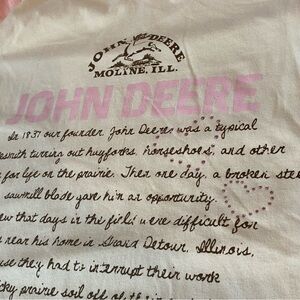 JOHN DEERE
MOLINE, ILL.
JOHN DEERE
In 1837 our founder, John Deere was a typical
smith turning out hayforks, horseshoes, and other
for life on the prairie. Then one day, a broken stee
sawmill blade gave him an opportunity.
ew that days in the field were difficult for
near his home in Grand Detour, Illinois,
use they had to interrupt their work
cky prairie soil off of